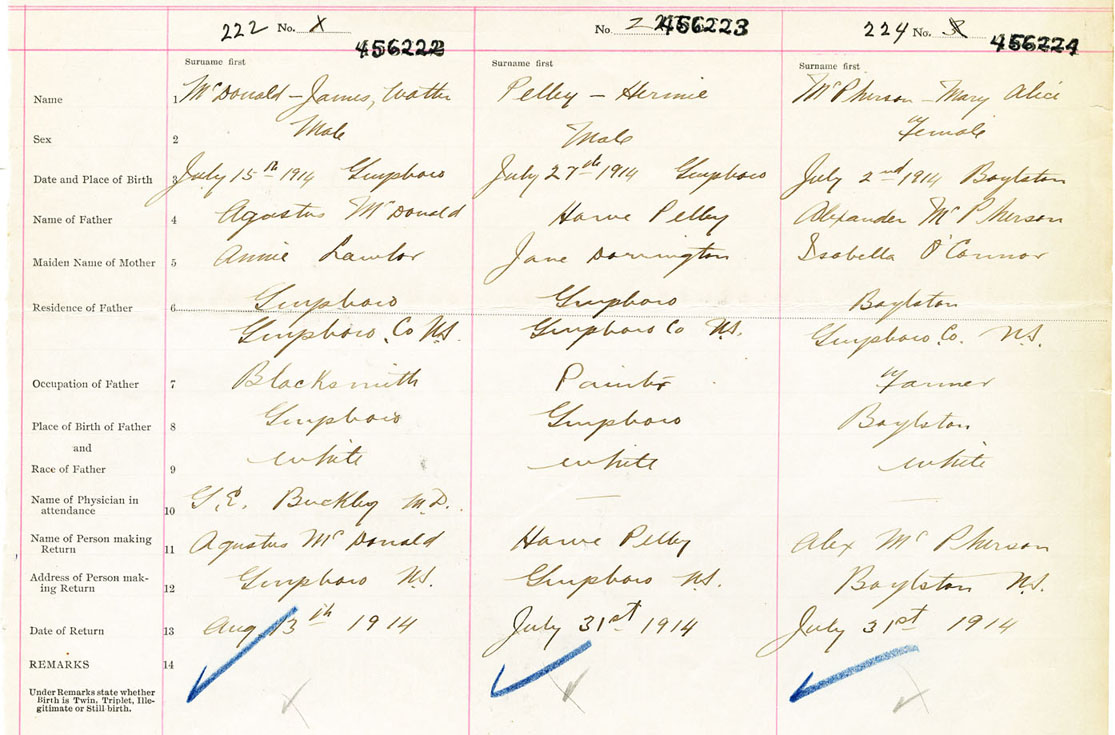 222 No. X 456222 No. 2 456223 224 No. 456224
Surname first Surname first Surname first
Name 1 McDonald - James, Walter Pelley - Hermie McPherson - Mary Alice
Sex 2 Male Male Female
Date and Place of Birth 3 July 15th 1914 Guysboro July 27th 1914 Guysboro July 2nd 1914 Boylston
Name of Father 4 Agustus McDonald Harve Pelley Alexander McPherson
Maiden Name of Mother 5 Annie Lawlor Jane Dorrington Isabella O'Connor
Residence of Father 6 Guysboro Guysboro Boylston
Guysboro Co N.S. Guysboro Co N.S. Guysboro Co. N.S.
Occupation of Father 7 Blacksmith Painter Farmer
Place of Birth of Father 8 Guysboro Guysboro Boylston
and
Race of Father 9 white white white
Name of Physician in
attendance 10 G.E. Buckley M.D. — —
Name of Person making
Return 11 Agustus McDonald Harve Pelley Alex McPherson
Address of Person mak-
ing Return 12 Guysboro N.S. Guysboro N.S. Boylston N.S.
Date of Return 13 Aug 13th 1914 July 31st 1914 July 31st 1914
REMARKS 14
Under Remarks state whether
Birth is Twin, Triplet, Ille-
gitimate or Still birth.